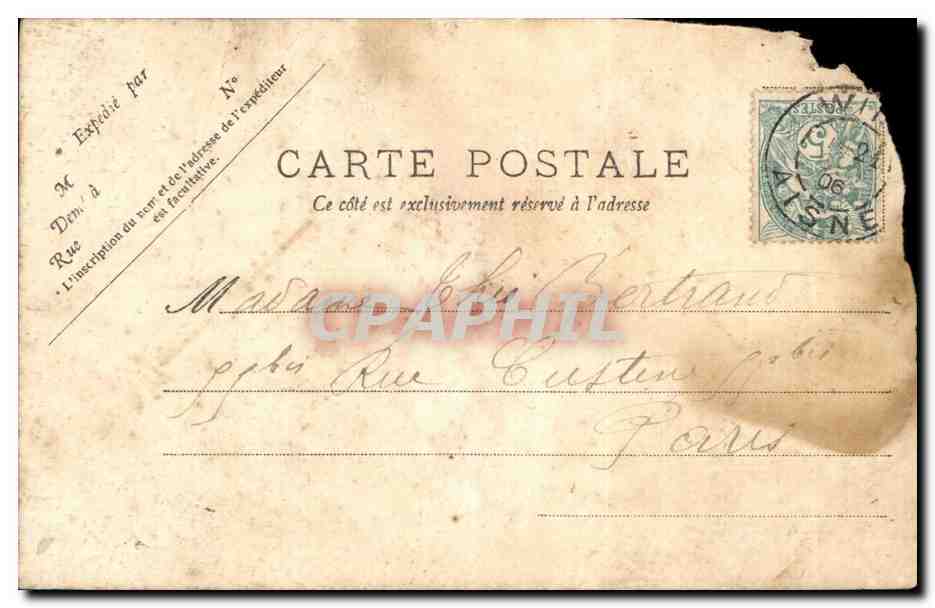 * Expédié par
M
N°
Demt à
Rue
* L'inscription du nom et de l'adresse de l'expéditeur
est facultative.
CARTE POSTALE
Ce côté est exclusivement réservé à l'adresse
POSTES
5
21
06
AISNE
Madame Bertrand
Rue Custine 9 bis
Paris
CPAPHIL